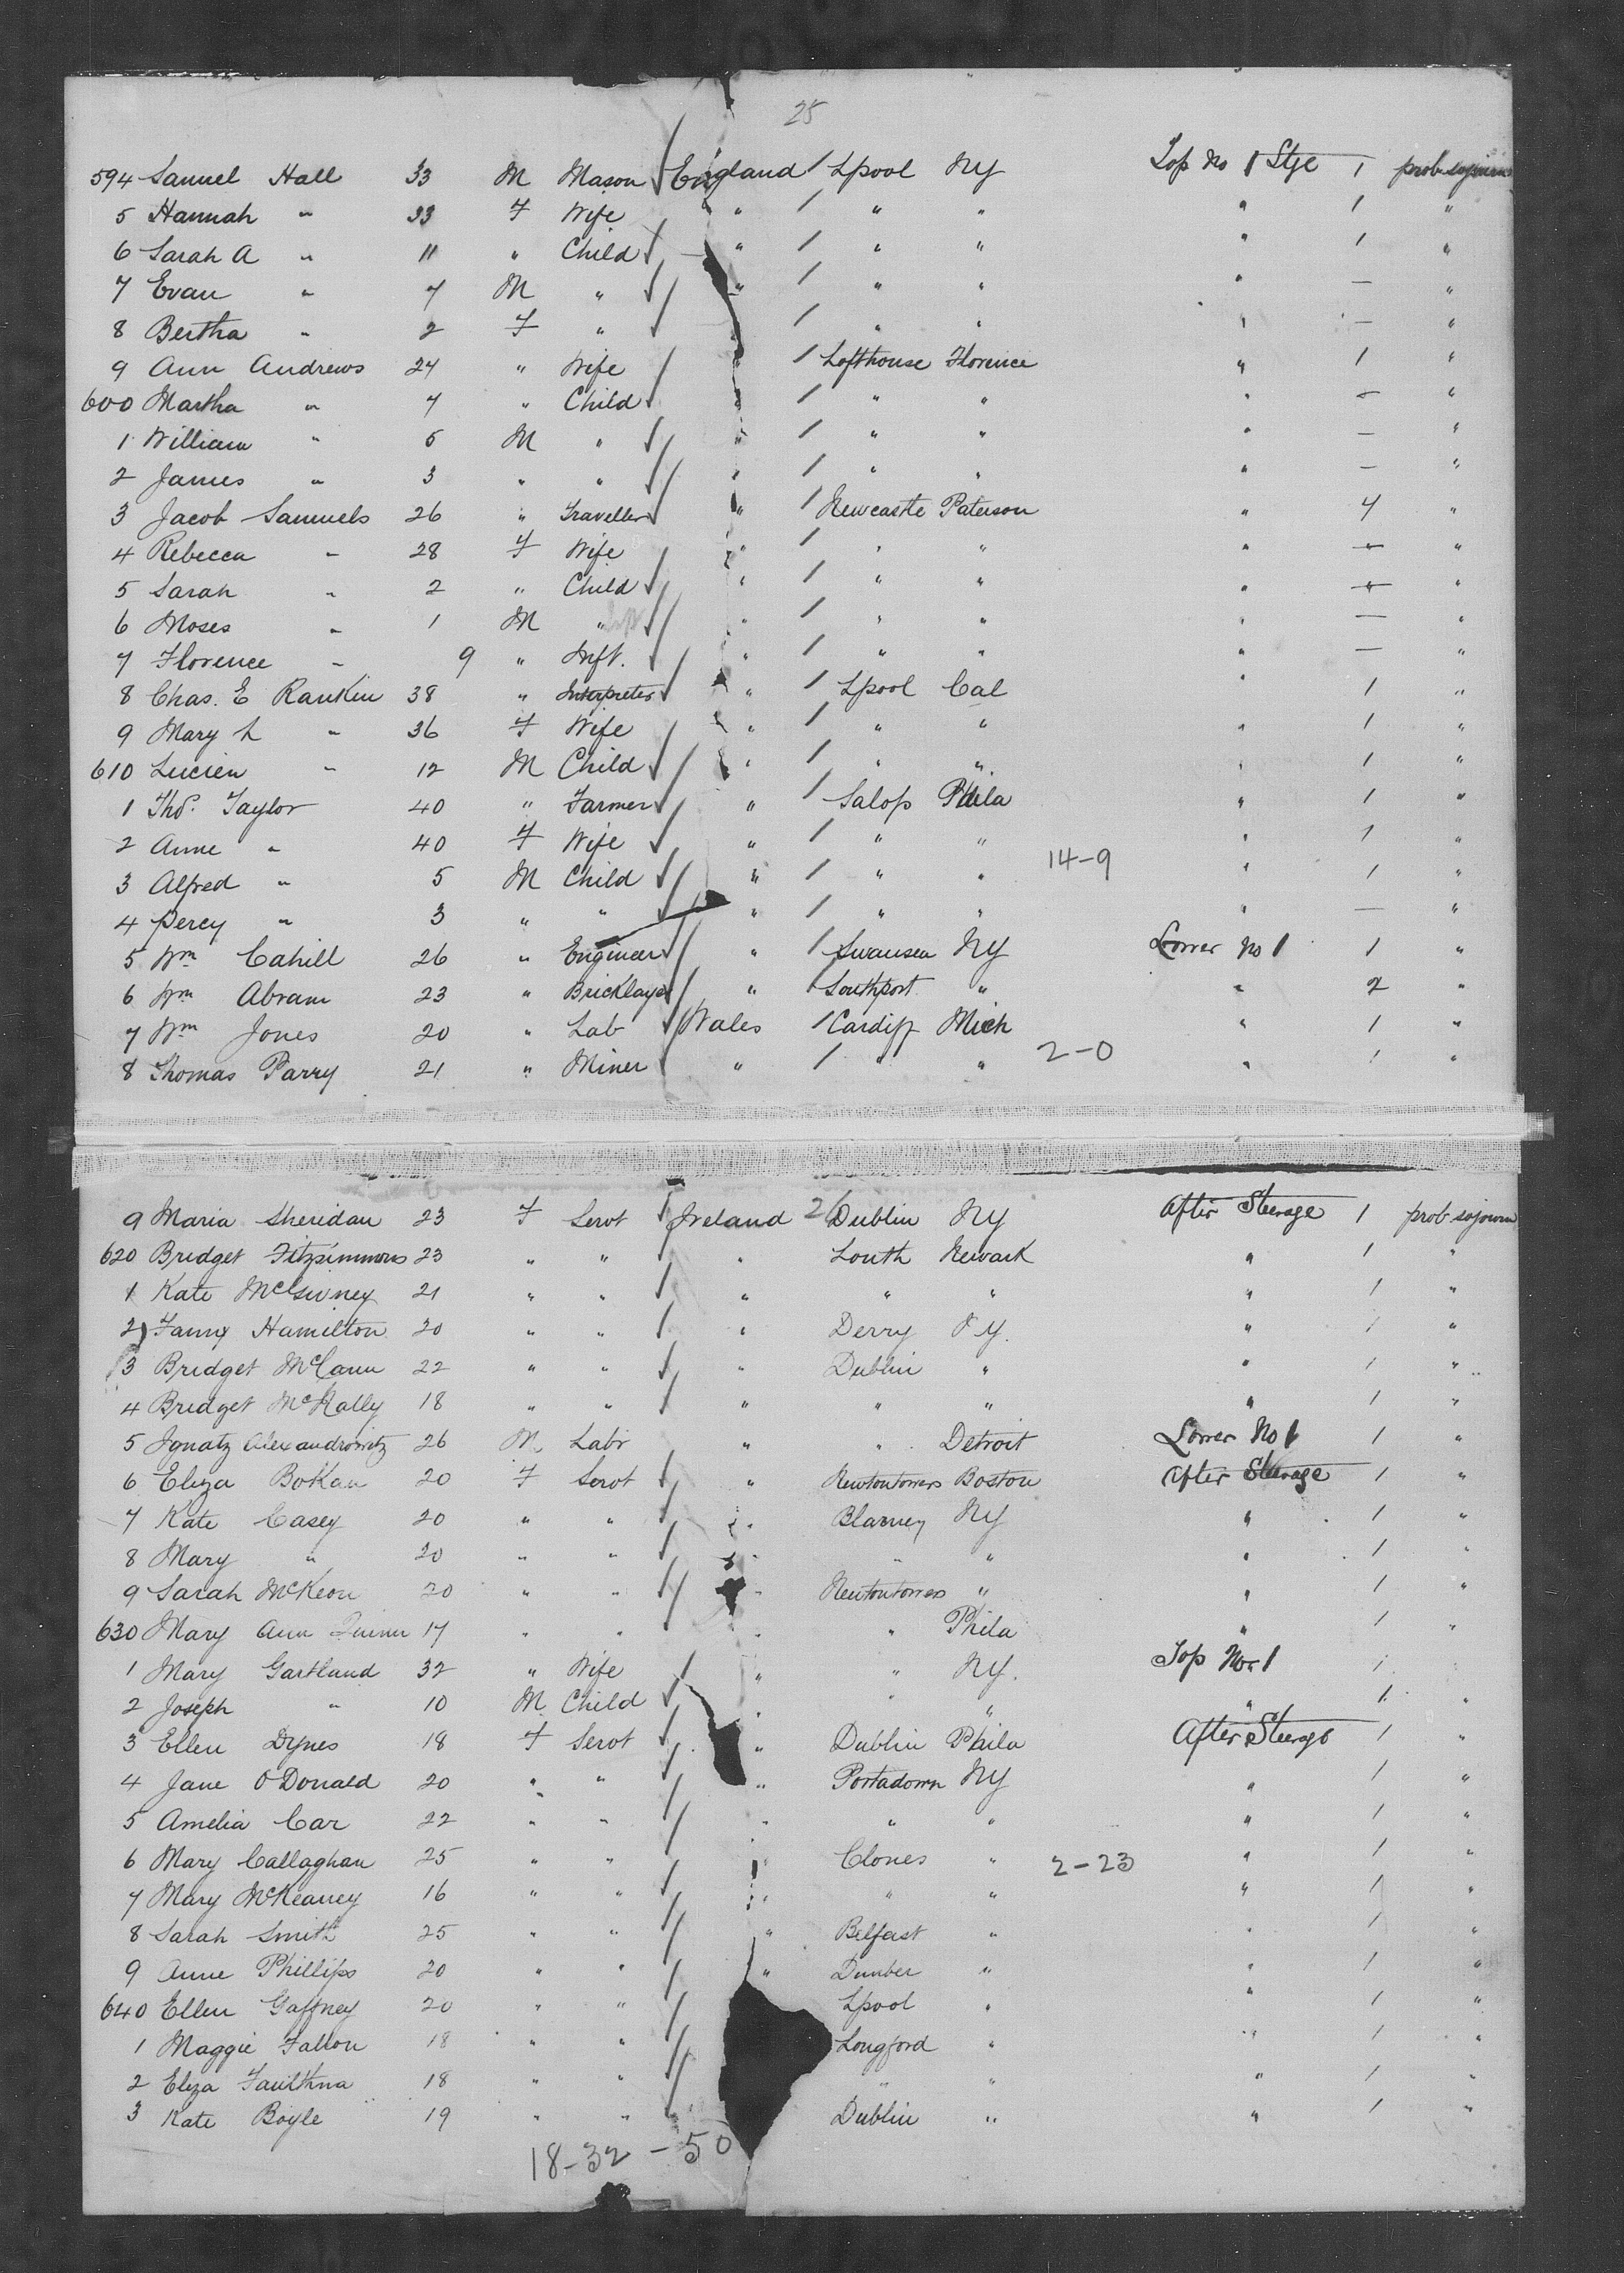 25
594 Samuel Hall 33 M Mason England / Lpool NY Top No 1 Stge 1 prob sojourn
5 Hannah " 33 F Wife " / " " " 1 "
6 Sarah A " 11 " Child " / " " " 1 "
7 Evan " 7 M " " / " " " — "
8 Bertha " 2 F " " / " " " — "
9 Ann Andrews 24 " Wife " / Lofthouse Florence " 1 "
600 Martha " 7 " Child " / " " " — "
1 William " 5 M " " / " " " — "
2 James " 3 " " " / " " " — "
3 Jacob Samuels 26 " Traveller " / Newcastle Paterson " 4 "
4 Rebecca " 28 F Wife " / " " " — "
5 Sarah " 2 " Child " / " " " — "
6 Moses " 1 M " " / " " " — "
7 Florence " 9 " Inft. " / " " " — "
8 Chas. E Rankin 38 " Interpreter " / Lpool Cal " 1 "
9 Mary L " 36 F Wife " / " " " 1 "
610 Lucien " 12 M Child " / " " " 1 "
1 Thos. Taylor 40 " Farmer " / Salop Phila " 1 "
2 Anne " 40 F Wife " / " " " 1 "
3 Alfred " 5 M Child " / " " 14-9 " 1 "
4 Percy " 3 " " " / " " " — "
5 Wm Cahill 26 " Engineer " / Swansea NY Lower No 1 1 "
6 Wm Abram 23 " Bricklayer " / Southport " " 2 "
7 Wm Jones 20 " Lab Wales / Cardiff Mich " 1 "
8 Thomas Parry 21 " Miner " / " " 2-0 " 1 "
9 Maria Sheridan 23 F Servt Ireland 2/ Dublin NY After Steerage 1 prob sojourn
620 Bridget Fitzsimmons 23 " " " Louth Newark " 1 "
1 Kate McGivney 21 " " " " " " 1 "
2 Fanny Hamilton 20 " " " Derry NY. " 1 "
3 Bridget McCann 22 " " " Dublin " " 1 "
4 Bridget McNally 18 " " " " " " 1 "
5 Ignatz Alexandrowitz 26 M Labr " " Detroit Lower No 1 1 "
6 Eliza Bokan 20 F Servt " Newtontowers Boston After Steerage 1 "
7 Kate Casey 20 " " " Blarney NY " 1 "
8 Mary " 20 " " " " " " 1 "
9 Sarah McKeon 20 " " " Newtontowers " " 1 "
630 Mary Ann Quinn 17 " " " " Phila " 1 "
1 Mary Gartland 32 " Wife " " NY. Top No 1 1
2 Joseph " 10 M Child " " " " 1 "
3 Ellen Dynes 18 F Servt " Dublin Phila After Steerage 1 "
4 Jane O'Donald 20 " " " Portadown NY " 1 "
5 Amelia Car 22 " " " " " " 1 "
6 Mary Callaghan 25 " " " Clones " 2-23 " 1 "
7 Mary McKearney 16 " " " " " " 1 "
8 Sarah Smith 25 " " " Belfast " " 1 "
9 Anne Phillips 20 " " " Dunber " " 1 "
640 Ellen Gaffney 20 " " Lpool " " 1 "
1 Maggie Fallon 18 " " Longford " " 1 "
2 Eliza Faulkna 18 " " " " " 1 "
3 Kate Boyle 19 " " Dublin " " 1 "
18-32-50